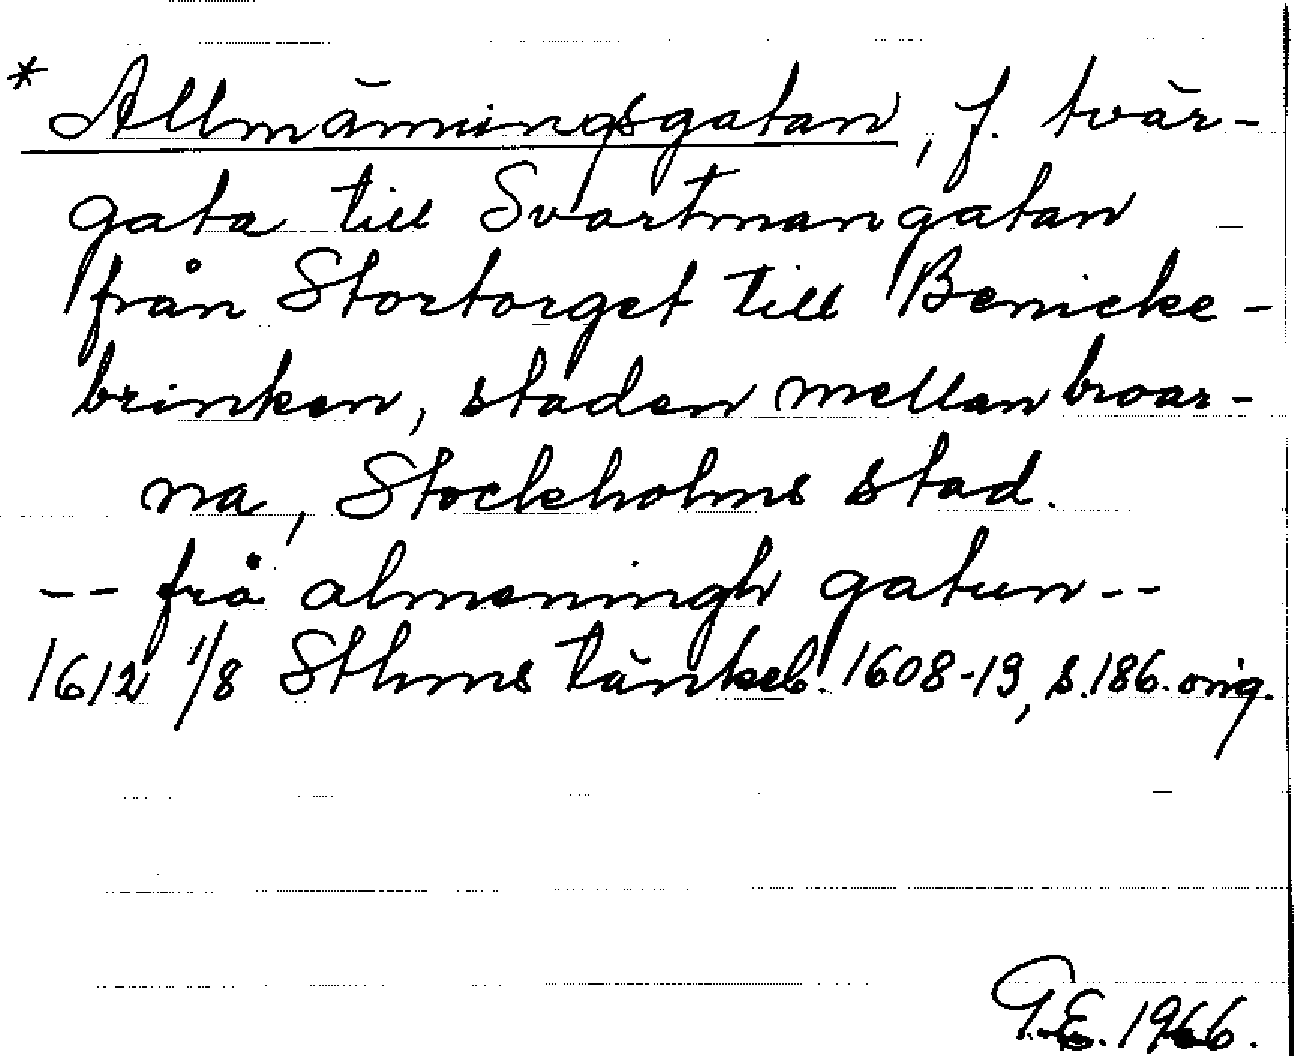 * Allmänningsgatan, f. tvär-
gata till Svartmangatan
från Stortorget till Benicke-
brinken, staden mellan broar-
na, Stockholms stad.
-- frå almeningh gatun --
1612 1/8 Sthms tänkeb. 1608-19, s. 186. orig.
G.E. 1966.